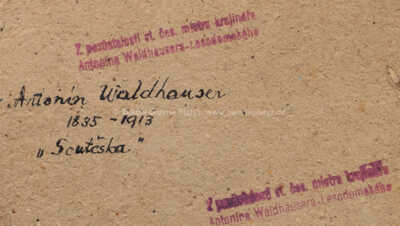 Z pozůstalosti st. čes. mistra krajináře
Antonína Waldhausera-Lesodomského
Antonín Waldhauser
1835 - 1913
„Soutěska"
Z pozůstalosti st. čes. mistra krajináře
Antonína Waldhausera-Lesodomského